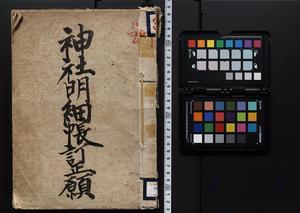 神社明細帳訂正願